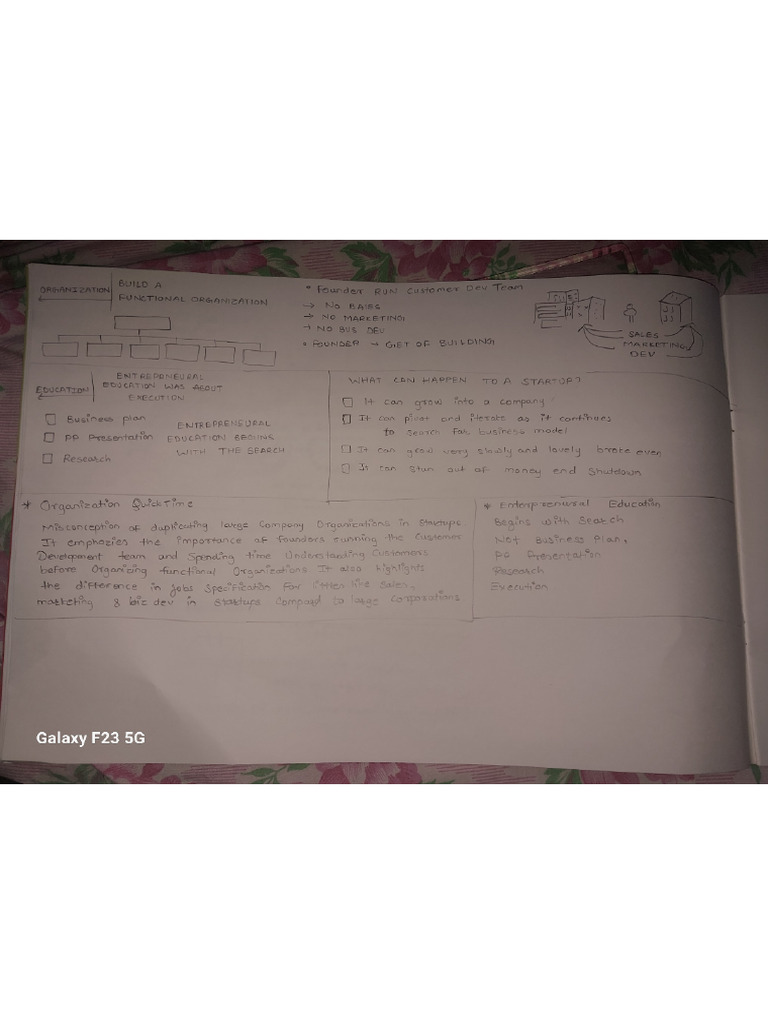 ORGANIZATION
BUILD A
FUNCTIONAL ORGANIZATION
• Founder RUN Customer Dev Team
→ NO
→ NO MARKETING
→ NO BUS DEV
• FOUNDER → GET OF BUILDING
SALES
MARKETING
DEV
EDUCATION
ENTREPRENEURAL
EDUCATION WAS ABOUT
EXECUTION
Business plan
PP Presentation
Research
ENTREPRENEURAL
EDUCATION BEGINS
WITH THE SEARCH
WHAT CAN HAPPEN TO A STARTUP?
It can grow into a company
It can pivot and iterate as it continues
to search for business model
It can grow very slowly and lovely broke even
It can out of money end shutdown
* Organization Quick Time
Misconception of duplicating large Company Organizations in Startups
It emphazies the importance of founders running the customer
Development team and Spending time Understanding Customers
before Organizing functional Organizations It also highlights
the difference in jobs specification for like sales,
marketing & biz dev in startups Compard to large corporations
* Enterpreniural Education
Begins with Search
Not Business Plan,
PP Presentation
Research
Execution
Galaxy F23 5G